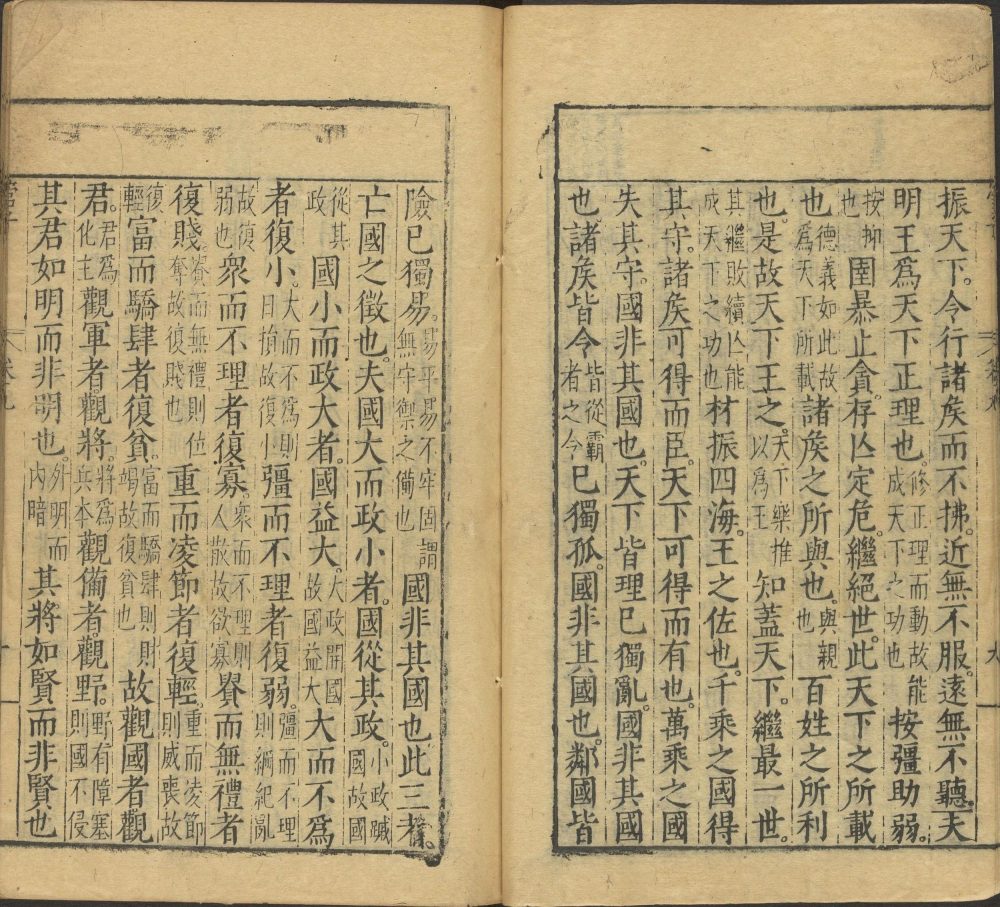 振天下。令行諸矦而不拂。近無不服。遠無不聽。夫
明王爲天下正理也。修正理而動故能成天下之功也按彊助弱。
按抑也圉暴止貪。存亾定危。繼絕世。此天下之所載
也德義如此故爲天下所載諸矦之所與也。與親也百姓之所利
也。是故天下王之。天下樂推以爲王知蓋天下。繼最一世。
其繼敗續亾能成天下之功也材振四海。王之佐也。千乘之國得
其守。諸矦可得而臣。天下可得而有也。萬乘之國
失其守。國非其國也。天下皆理已獨亂。國非其國
也諸矦皆令皆從霸者之令已獨孤。國非其國也。鄰國皆
險已獨易。易平易不牢固謂無守禦之備也國非其國也此三者。
亡國之徵也。夫國大而政小者。國從其政。小政蹴國故國
從其政國小而政大者。國益大。大政開國故國益大大而不爲
者復小。大而不爲則日損故復小彊而不理者復弱。彊而不理則綱紀亂
故復弱也衆而不理者復寡。衆而不理則人散故欲寡貴而無禮者
復賤。貴而無禮則位奪故復賤也重而凌節者復輕。重而凌節則威喪故
復輕富而驕肆者復貧。富而驕肆則則竭故復貧也故觀國者觀
君。君爲化主觀軍者觀將。將爲兵本觀備者觀野。野有障塞則國不侵
其君如明而非明也。外明而內暗其將如賢而非賢也